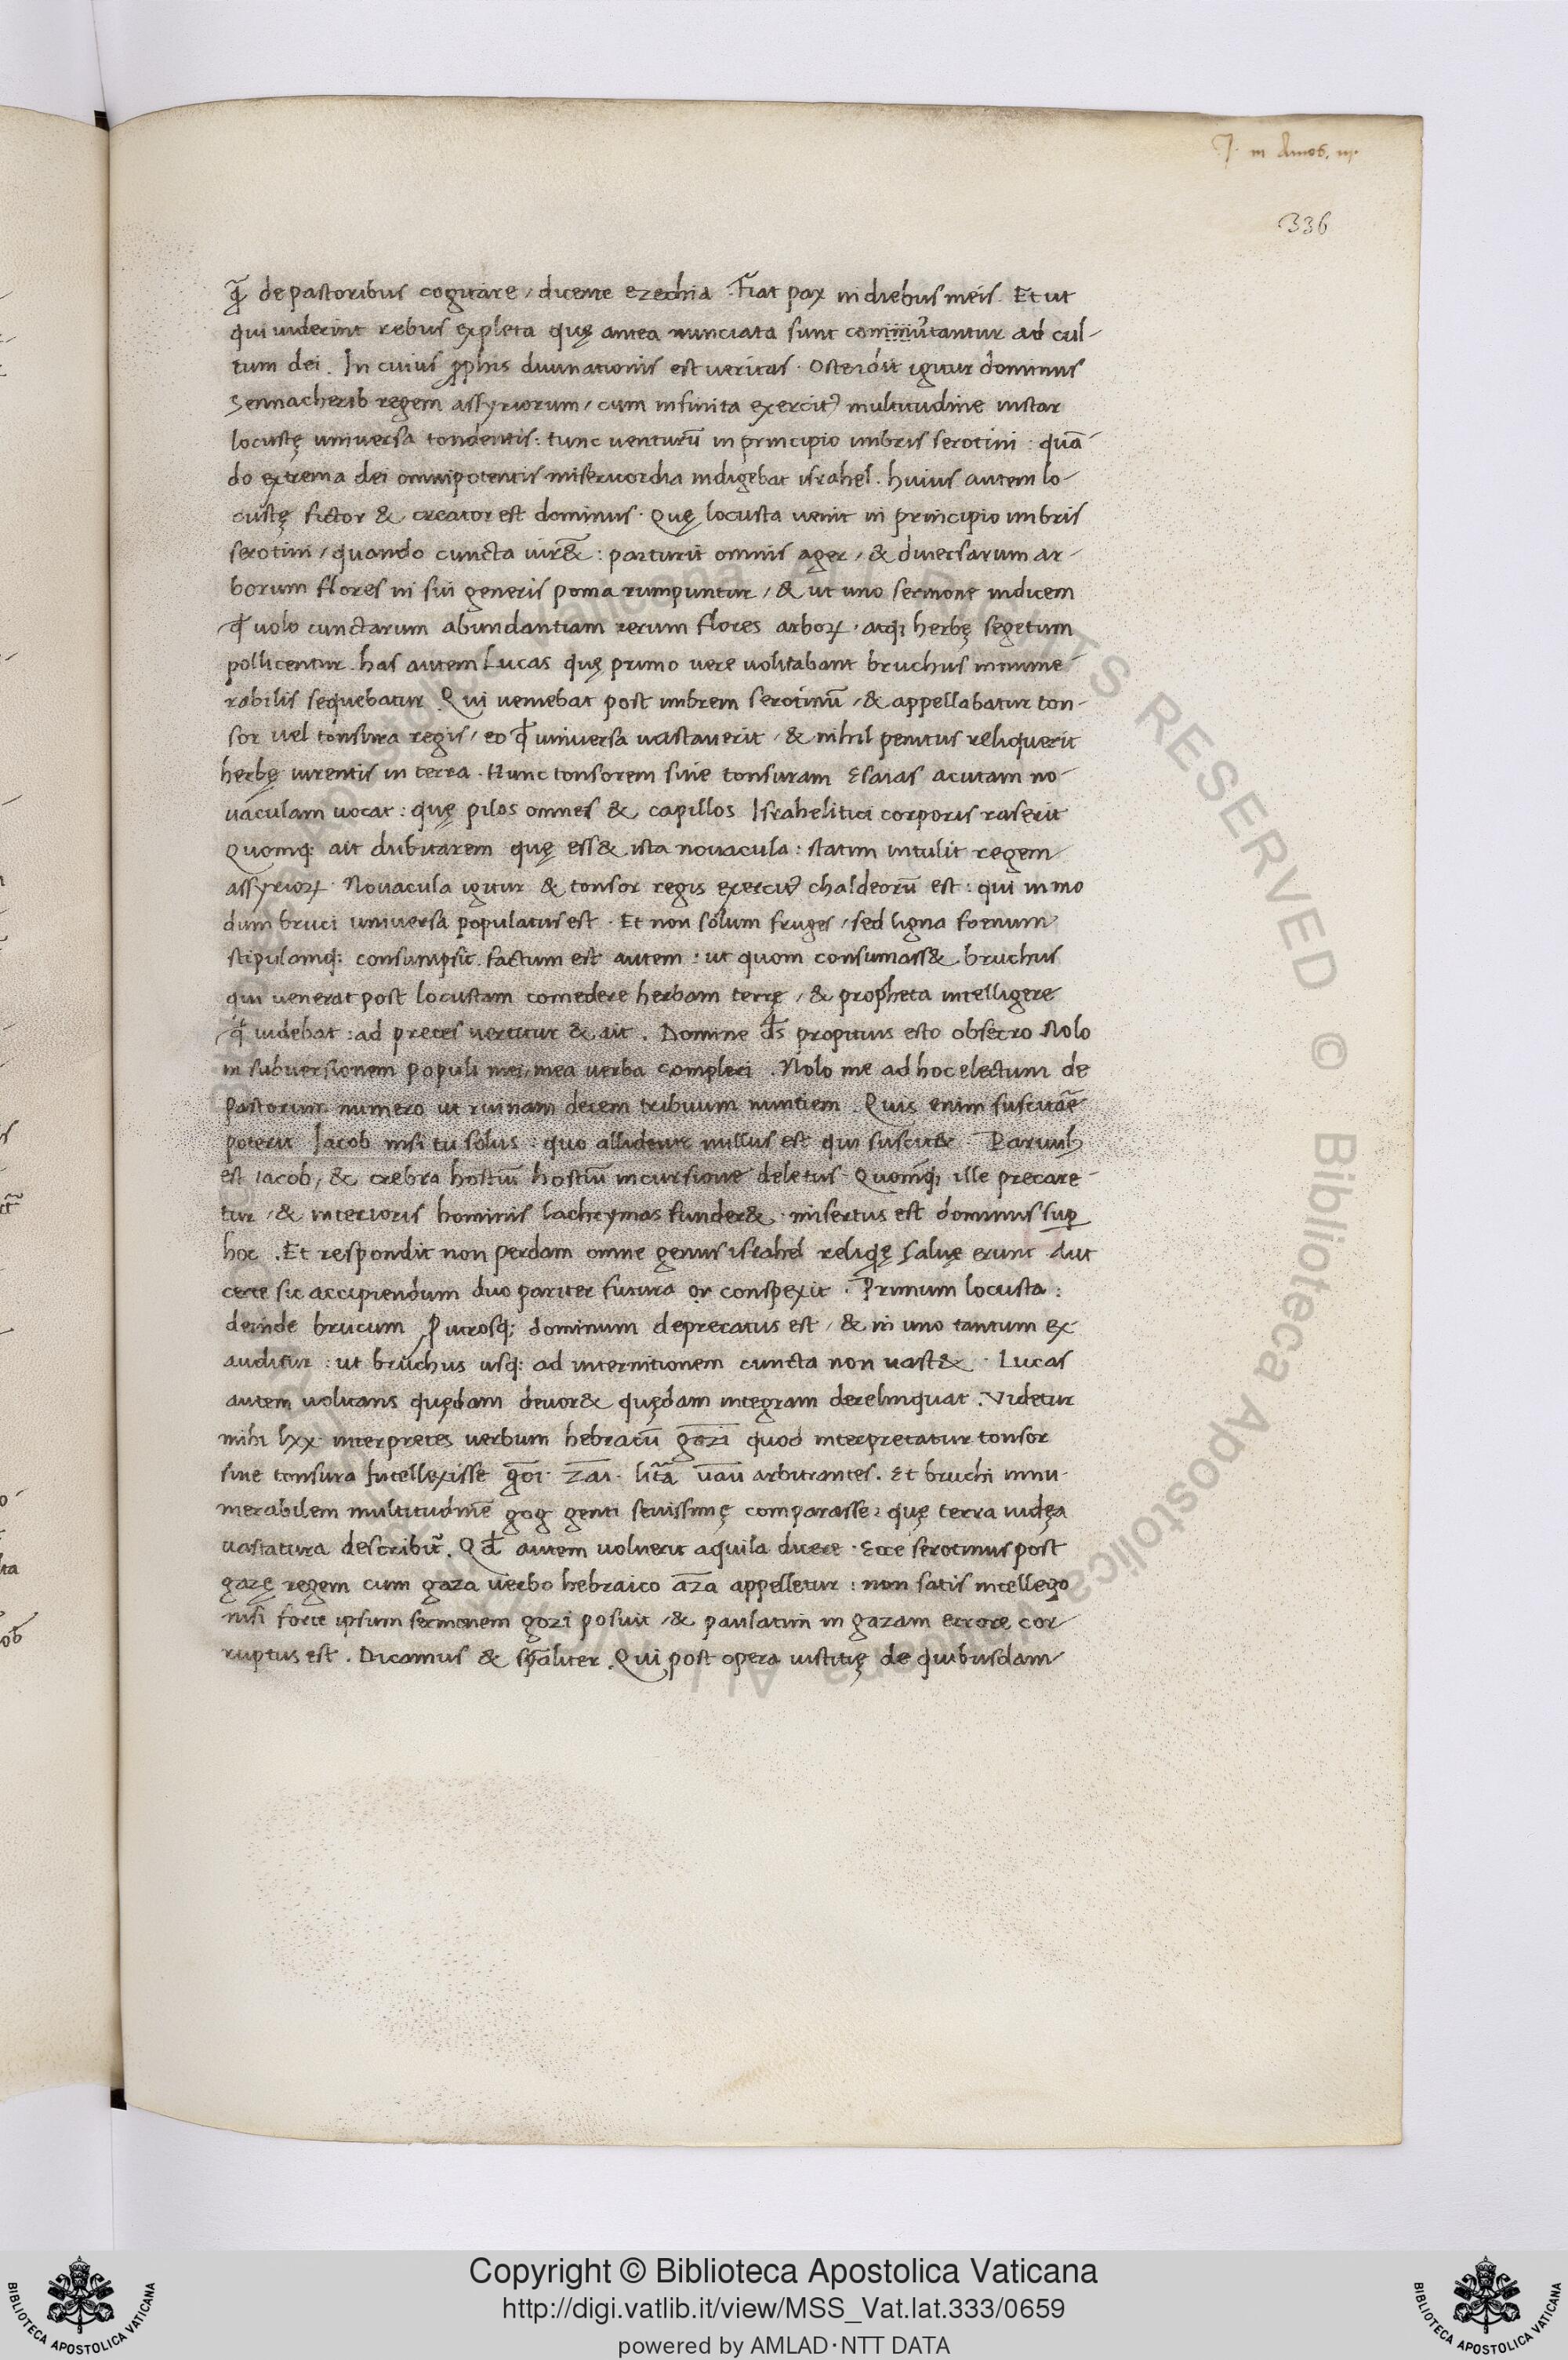 J. in Amos. iij.
336
q̃ de pastoribus cogitare / dicente ezechia. Fiat pax in diebus meis. Et ut
qui uiderint rebus expleta quę antea nunciata sunt commutantur ad cul-
tum dei. In cuius ꝓphis diuinationis est ueritas. Ostendit igitur dominus
Sennacherib regem assyriorum / cum infinita exercit᾽ multitudine instar
locustę uniuersa tondentis: tunc venturũ in principio imbris serotini: quã
do extrema dei omnipotentis misericordia indigebat israhel. huius autem lo-
custę fictor & creator est dominus. Quę locusta uenit in principio imbris
serotini / quando cuncta uir&: parturit omnis ager / & diuersarum ar-
borum flores in sui generis poma rumpuntur / & ut uno sermone indicem
qđ uolo cunctarum abundantiam rerum flores arboꝝ. atqꝫ herbę segetum
pollicentur. has autem Lucas quę primo uere uolitabant bruchus innume-
rabilis sequebatur. Qui ueniebat post imbrem serotinũ / & appellabatur ton-
sor uel tonsura regis / eo qđ uniuersa uastauerit / & nihil penitus reliquerit
herbę uirentis in terra. Hunc tonsorem siue tonsuram Esaias acutam no-
uaculam uocat: quę pilos omnes & capillos Israhelitici corporis raserit
Quomqꝫ ait dubitarem quę ess& ista nouacula: statim intulit regem
assyrioꝝ. Nouacula igitur & tonsor regis exercit᾽ chaldeorũ est: qui in mo
dum bruci uniuersa populatus est. Et non solum fruges / sed ligna foenum
stipulamqꝫ consumpsit. factum est autem: ut quom consumass& bruchus
qui uenerat post locustam comedere herbam terrę / & propheta intelligere
qđ uidebat: ad preces uertitur & ait. Domine d̃s propitius esto obsecro Nolo
in subuersionem populi mei, mea uerba compleri. Nolo me ad hoc electum de
pastorum numero ut ruinam decem tribuum nuntiem. Quis enim suscitãe
poterit Iacob nisi tu solus: quo allidente nullus est qui suscit&. Paruulꝰ
est Iacob, & crebra hostiũ hostiũ incursione deletus. Quomqꝫ ille precare-
tur / & interioris hominis lachrymas funder& misertus est dominus suꝑ
hoc. Et respondit non perdam omne genus israhel reliqę saluę erunt Aut
certe sic accipiendum duo pariter futura or̃ conspexit. Primum locusta:
deinde brucum ꝓ utrosqꝫ dominum deprecatus est / & in uno tantum ex
auditur: ut bruchus usqꝫ ad internitionem cuncta non uast&. Lucas
autem uolitans quędam deuor& quędam integram derelinquat. Videtur
mihi lxx interpretes uerbum hebraicũ gozi quod interpretatur tonsor
siue tonsura intellexisse goi. zai. litã uau arbitrantes. Et bruchi innu-
merabilem multitudinẽ gog genti seuissimę comparasse: quę terra iudęa
uastatura describit̃. Qđ autem uoluerit aquila dicere. Ecce serotinus post
gazę regem cum gaza uerbo hebraico aza appelletur: non satis intellego
nisi forte ipsum sermonem gozi posuit / & paulatim in gazam errore cor-
ruptus est. Dicamus & sp̃aliter. Qui post opera iustitię de quibusdam
Copyright © Biblioteca Apostolica Vaticana
http://digi.vatlib.it/view/MSS_Vat.lat.333/0659
powered by AMLAD·NTT DATA